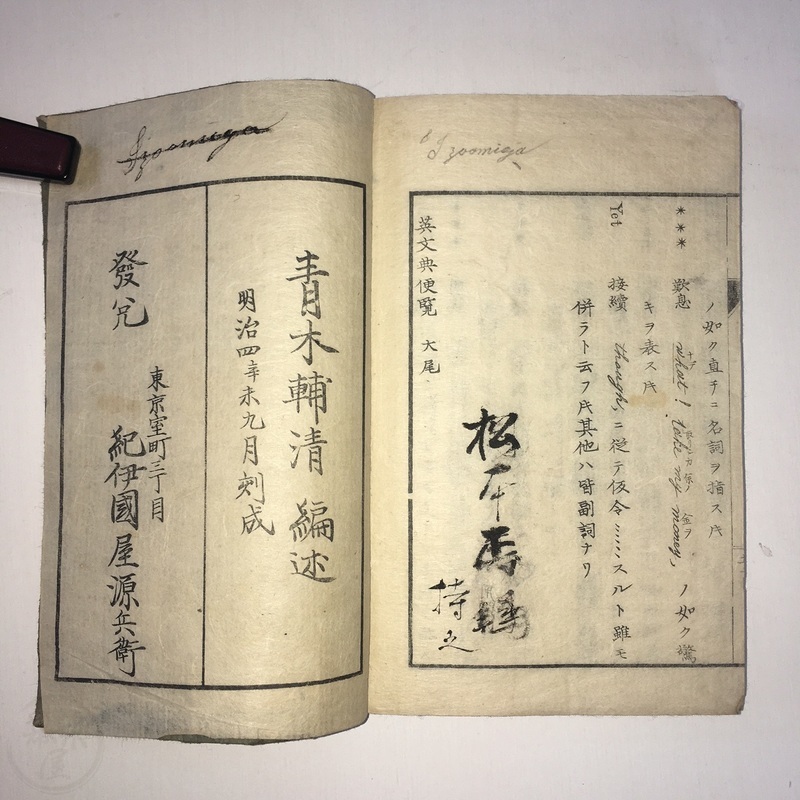 Izoomiya
ノ如ク直チニ名詞ヲ指スㇺ
*** 歎息 what! take my money, ノ如ク驚
キヲ表スㇺ
Yet 接續 though, ニ從テ仮令……スルト雖モ
併ラト云フㇺ其他ハ皆副詞ナリ
英文典便覧 大尾
松本
持之
Izoomiya
青木輔清 編述
明治四辛未九月刻成
發兌
東京室町三丁目
紀伊國屋源兵衛